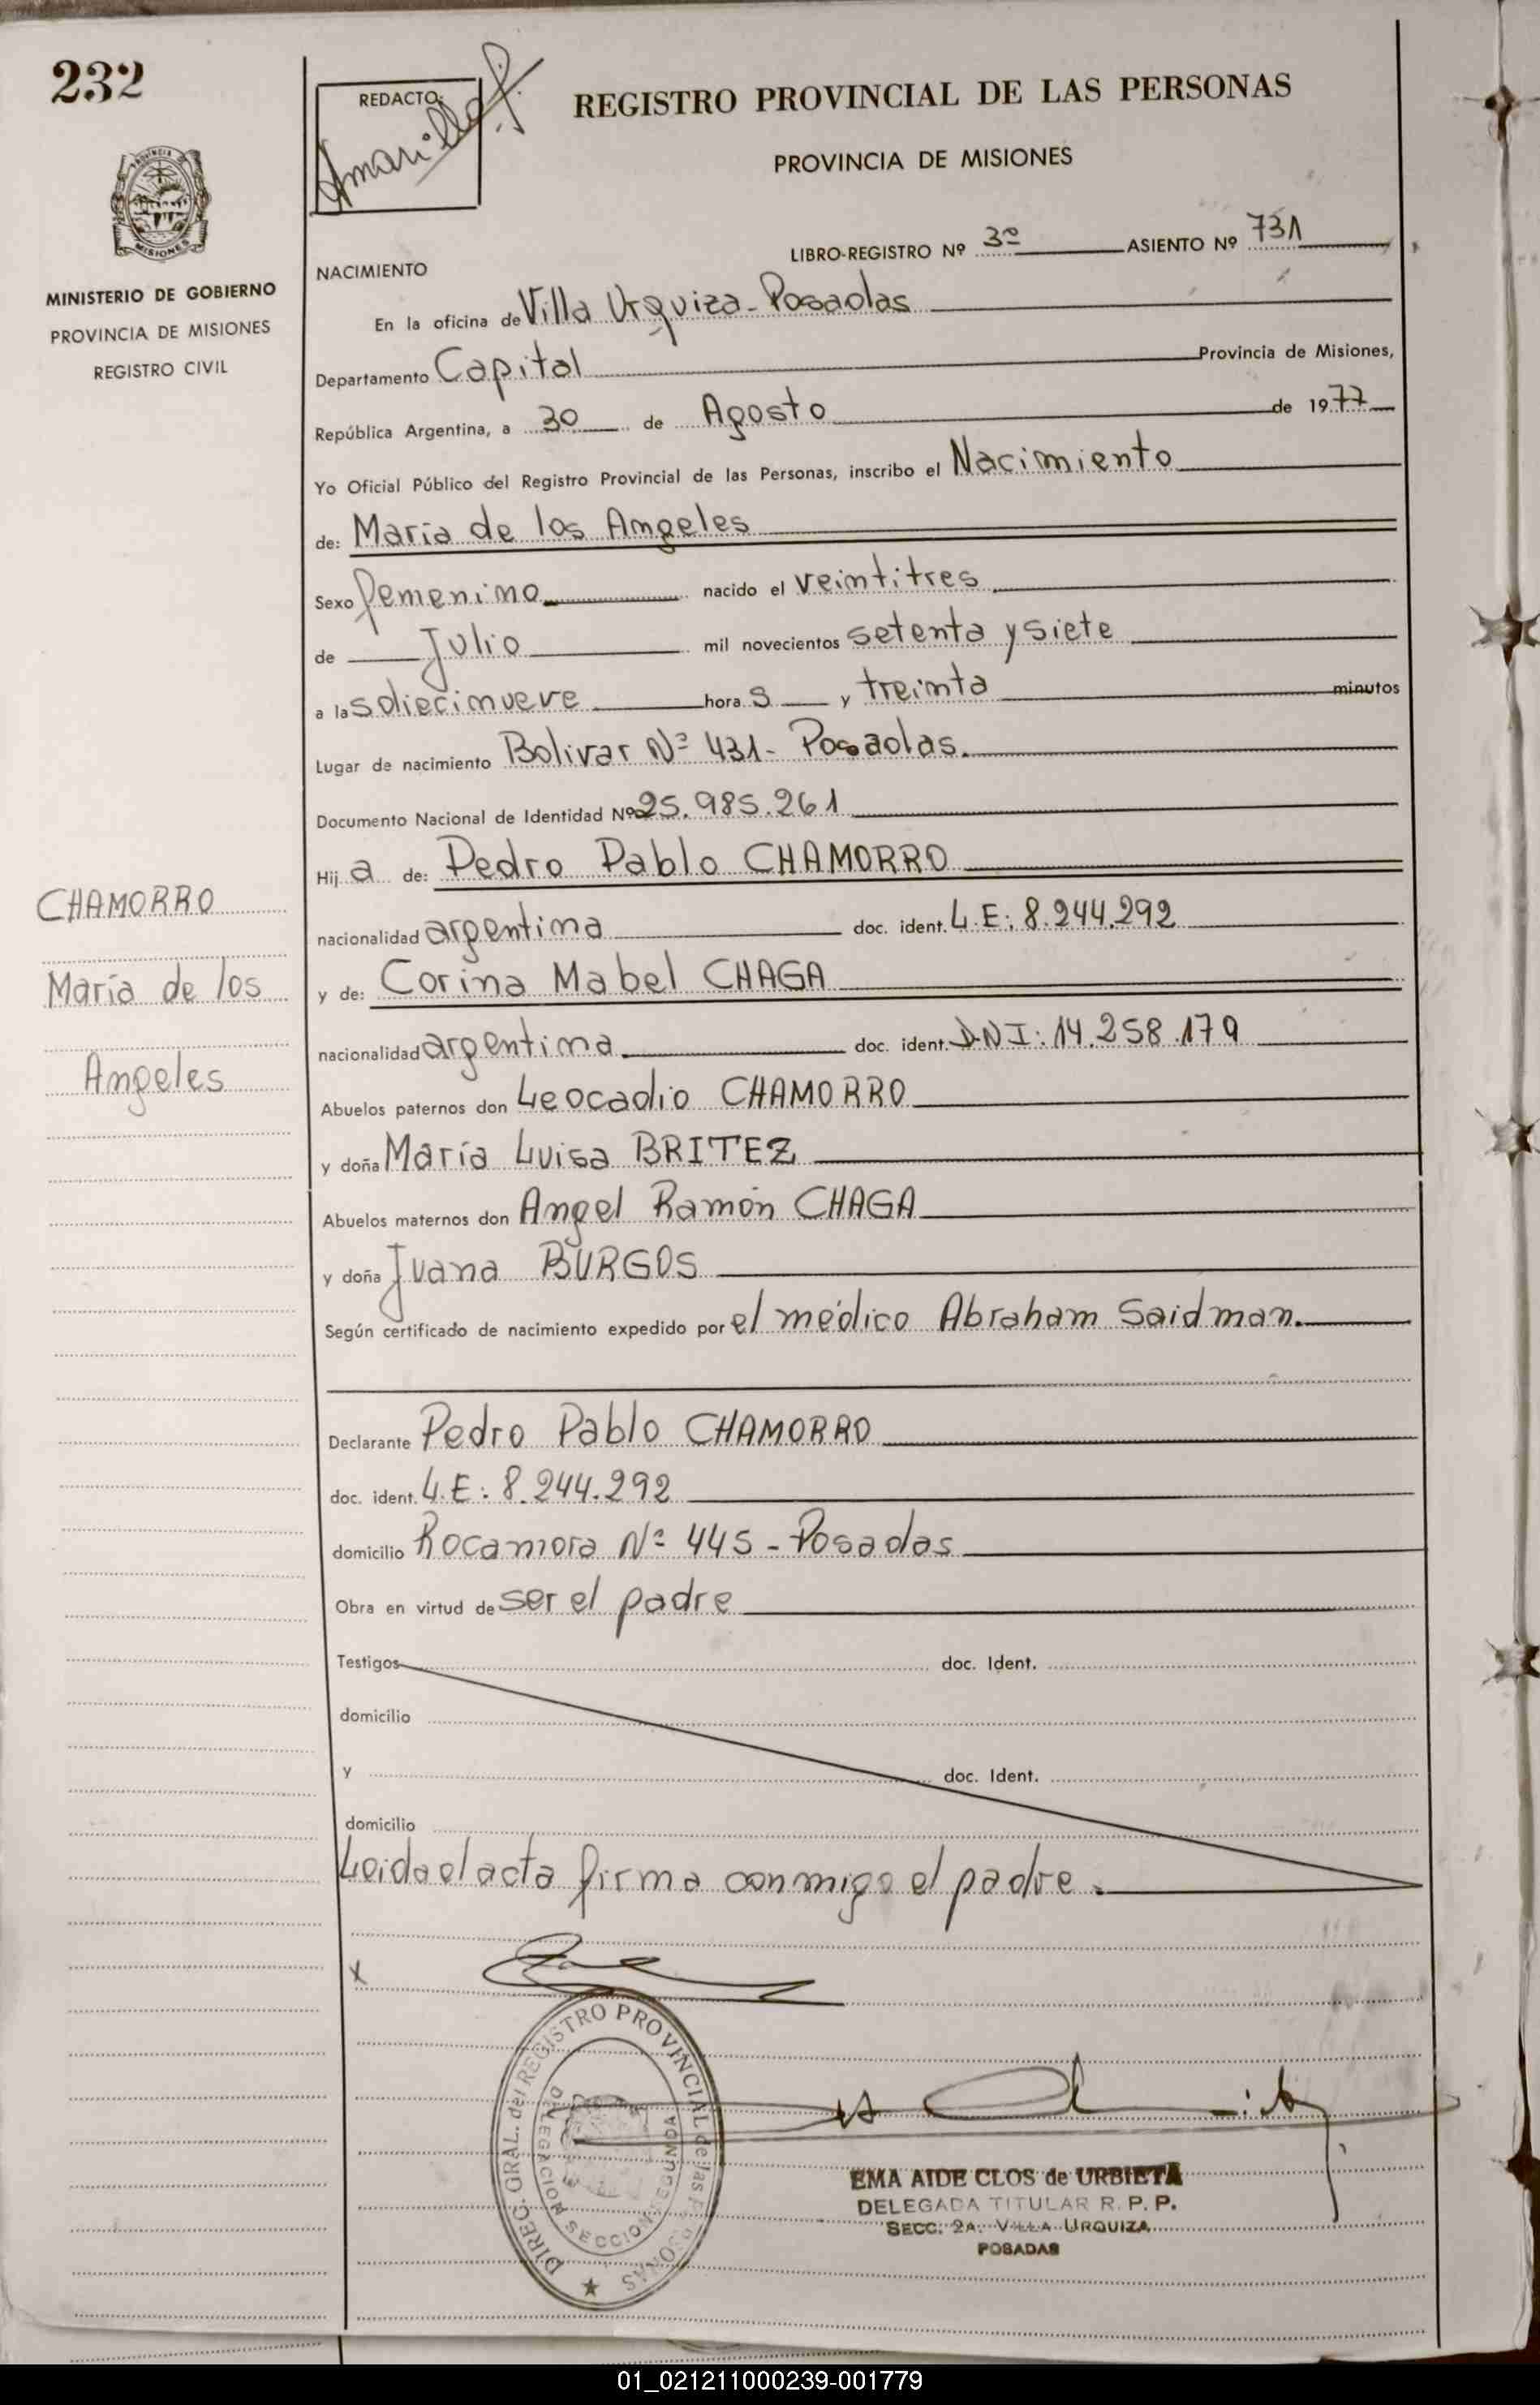 232
REDACTO:
Amarilla
REGISTRO PROVINCIAL DE LAS PERSONAS
PROVINCIA DE MISIONES
PROVINCIA
MISIONES
MINISTERIO DE GOBIERNO
PROVINCIA DE MISIONES
REGISTRO CIVIL
LIBRO-REGISTRO Nº 3º ASIENTO Nº 731
NACIMIENTO
En la oficina de Villa Urquiza - Posadas
Departamento Capital Provincia de Misiones,
República Argentina, a 30 de Agosto de 1977
Yo Oficial Público del Registro Provincial de las Personas, inscribo el Nacimiento
de: María de los Angeles
Sexo femenino nacido el veintitres
de Julio mil novecientos setenta y siete
a las diecinueve hora s y treinta minutos
Lugar de nacimiento Bolivar Nº 431 - Posadas.
Documento Nacional de Identidad Nº 25.985.261
Hij a de: Pedro Pablo CHAMORRO
nacionalidad argentina doc. ident. L.E: 8.244.292
y de: Corina Mabel CHAGA
nacionalidad argentina doc. ident. D.N.I: 14.258.179
Abuelos paternos don Leocadio CHAMORRO
y doña María Luisa BRITEZ
Abuelos maternos don Angel Ramón CHAGA
y doña Juana BURGOS
Según certificado de nacimiento expedido por el médico Abraham Saidman.
Declarante Pedro Pablo CHAMORRO
doc. ident. L.E: 8.244.292
domicilio Rocamora Nº 445 - Posadas
Obra en virtud de ser el padre
Testigos doc. Ident.
domicilio
y doc. Ident.
domicilio
Leida el acta firma conmigo el padre.
x
CHAMORRO
María de los
Angeles
DIREC. GRAL. del REGISTRO PROVINCIAL de las PERSONAS
DELEGACION SECCION SEGUNDA
EMA AIDE CLOS de URBIETA
DELEGADA TITULAR R. P. P.
SECC. 2A. VILLA URQUIZA
POSADAS
01_021211000239-001779